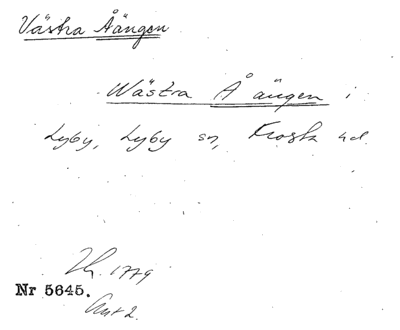 Västra Åängen
Wästra Å ängen i
Lyby, Lyby sn, Frosta hd.
Lh. 1779
Nr 5645.
Akt 2.